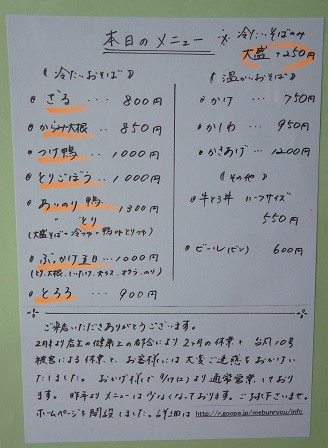 本日のメニュー
※ 冷たいそばのみ
大盛 +250円
《冷たいおそば》
ざる ・・・ 800円
からみ大根 ・・ 850円
つけ鴨 ・・・ 1000円
とりごぼう ・・・ 1000円
あいのり 鴨 ・・・ 1300円
〃 とり
ぶっかけ五目 ・・・ 1000円
(とり、大根、しいたけ、なっとう、オクラ、のり)
とろろ ・・・ 900円
《温かいおそば》
かけ ・・・ 750円
かしわ ・・ 950円
かきあげ ・・ 1200円
《その他》
牛とろ丼 ハーフサイズ
550円
ビール(ビン) 600円
ご来店いただきありがとうございます。
2月より店主の健康上の都合により2ヶ月の休業と 台風10号
被害による休業と、お客様には大変ご迷惑をおかけい
たしました。おかげ様で 通常営業しており
ます。昨年よりメニューは少なくなっております。ご了承下さいませ。
ホームページを開設しました。詳細は http://r.goope.jp/mebunryou/info